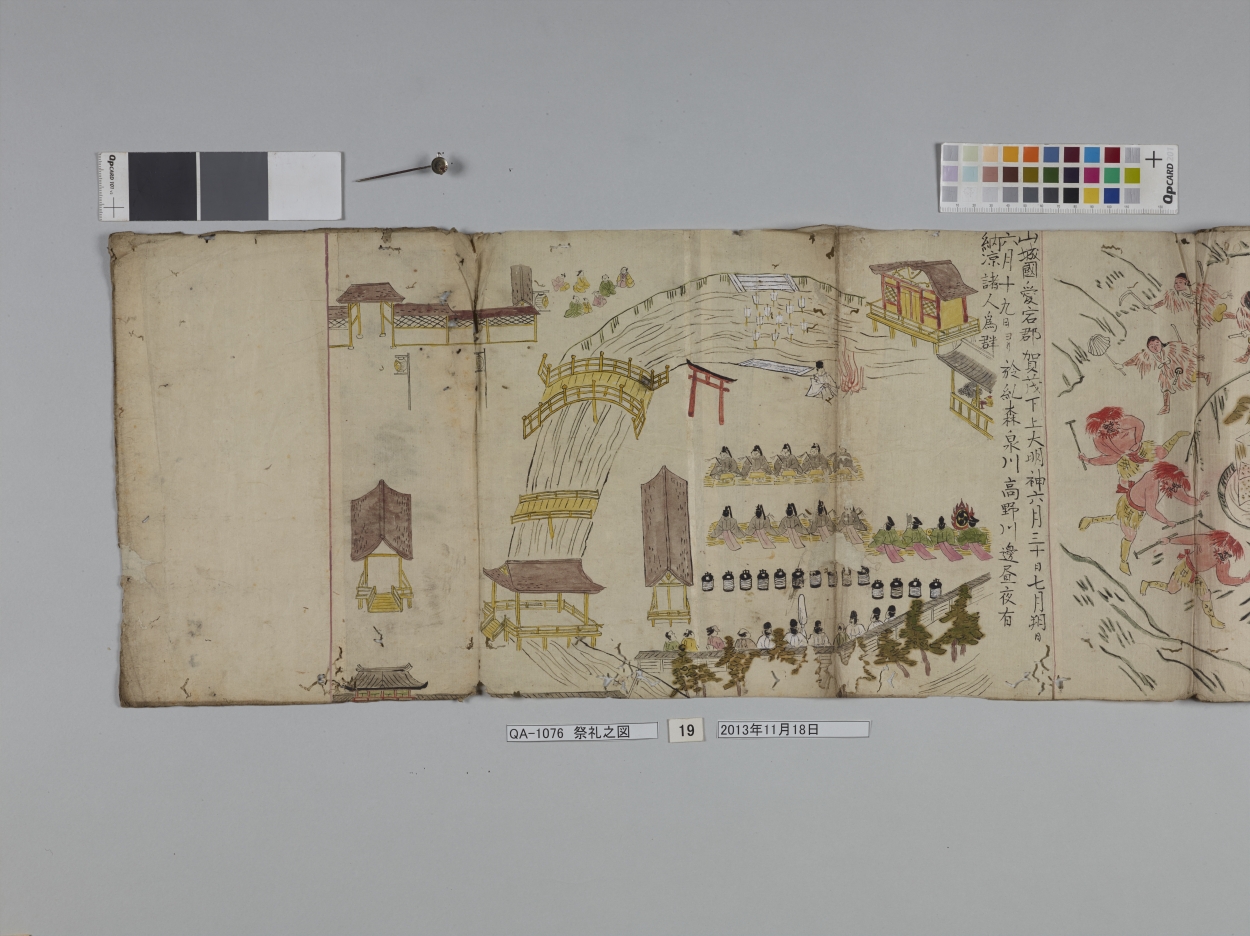 山城國愛宕郡賀茂下上大明神六月三十日七月朔日
六月十九日ヨリ於糺森泉川高野川邊昼夜有
納凉諸人為群
QA-1076 祭礼之図
19
2013年11月18日
QPCARD 101
QPCARD 201